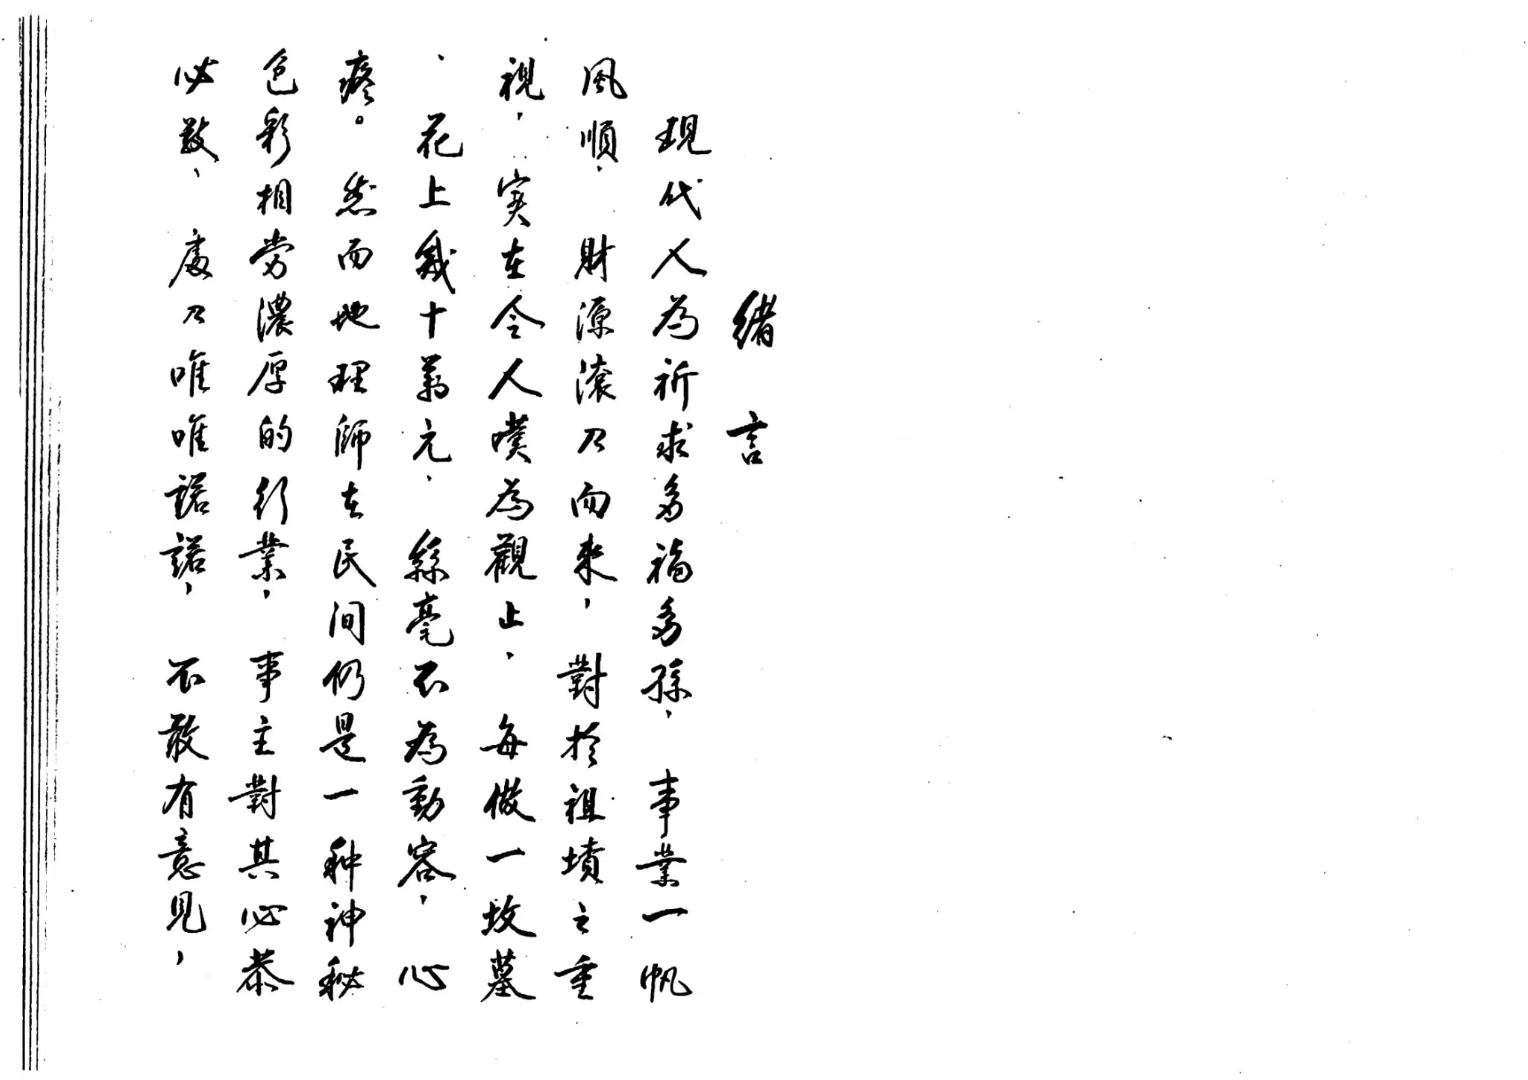 緒言
現代人為祈求多福多孫，事業一帆
風順，財源滾々而來，對於祖墳之重
視，实在令人嘆為觀止，每做一坟墓
、花上幾十萬元，絲毫不為動容，心
疼。然而地理師在民间仍是一种神秘
色彩相当濃厚的行業，事主對其必恭
必敬，處々唯唯諾諾，不敢有意見，